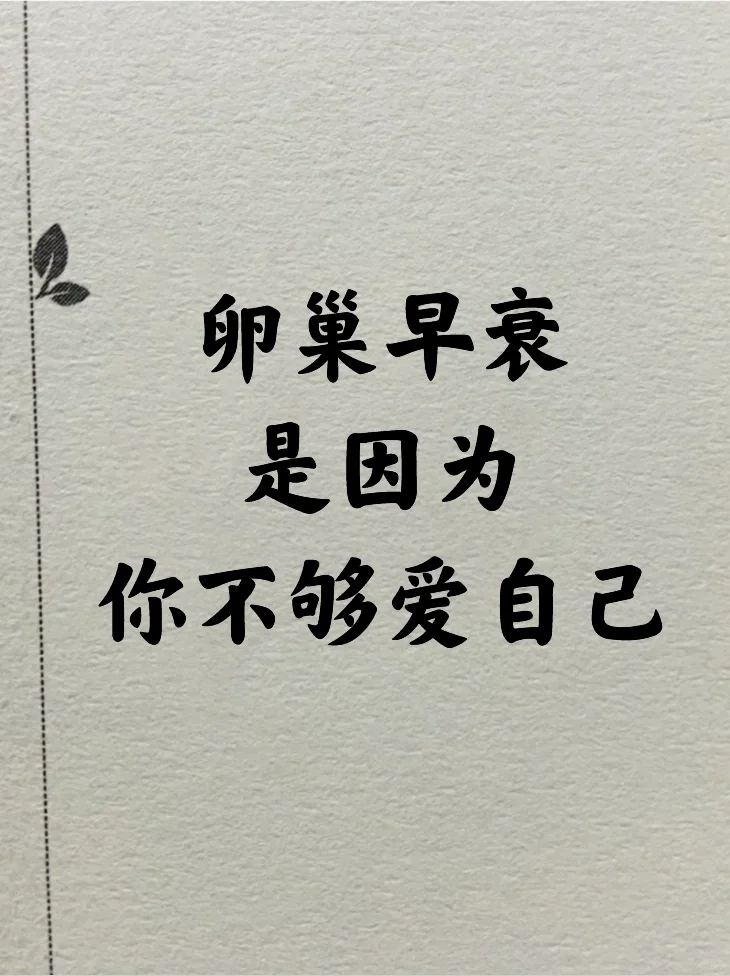 卵巢早衰
是因为
你不够爱自己